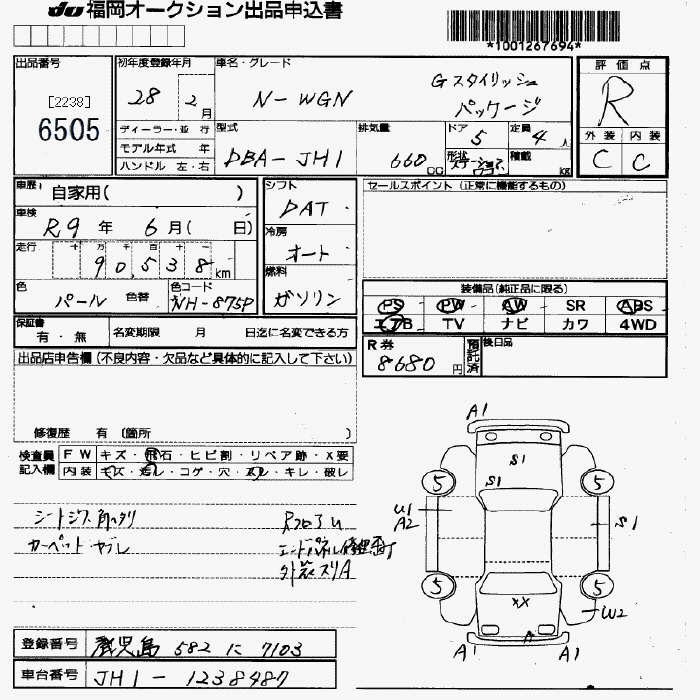 JU福岡オークション出品申込書
*1001267694*
出品番号
[2238]
6505
初年度登録年月
28 2月
車名・グレード
N-WGN Gスタイリッシュ
パッケージ
評価点
R
外装 内装
C C
ディーラー・並行
モデル年式 年
ハンドル 左・右
型式
DBA-JH1
排気量
660 cc
ドア
5
定員
4人
形状
積載
kg
車歴
自家用( )
車検
R9年 6月( 日)
走行
十 万 千 百 十 一
90,538km
色
パール 色替
色コード
NH-875P
シフト
DAT
冷房
オート
燃料
ガソリン
セールスポイント (正常に機能するもの)
装備品(純正品に限る)
PS PW AW SR ABS
エアB TV ナビ カワ 4WD
保証書
有・無
名変期限 月 日迄に名変できる方
R券
8680円
預託済
後日品
出品店申告欄(不良内容・欠品など具体的に記入して下さい)
修復歴 有 (箇所 )
検査員記入欄
FW キズ・飛石・ヒビ割・リペア跡・X要
内装 キズ・汚レ・コゲ・穴・スレ・キレ・破レ
カーペットヤブレ
外装スリA
A1
S1
S1
5 5
U1
A2
S1
5 5
XX
W2
A
A1 A1
登録番号 鹿児島 582 に 7103
車台番号 JH1-1238487